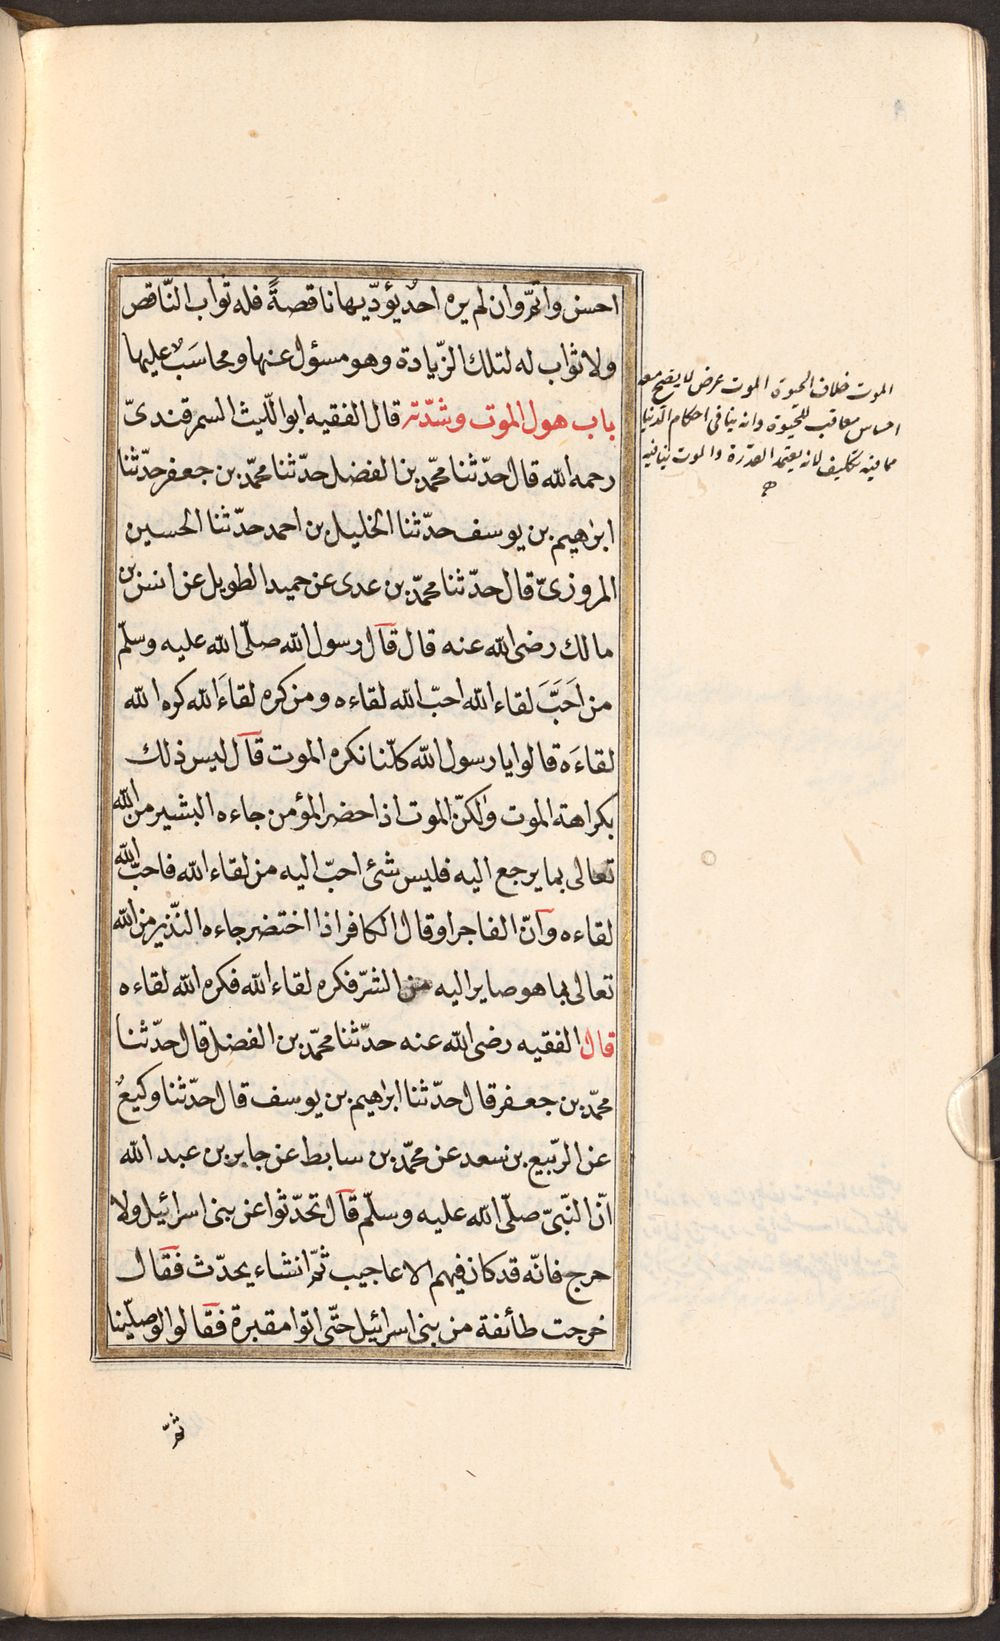 احسن واتمّ وان لم يره احدٌ يؤدّيها ناقصةً فله ثواب النّاقص
ولا ثواب له لتلك الزّيادة وهو مسؤل عنها ومحاسَبٌ عليها
باب هول الموت وشدّته قال الفقيه ابو اللّيث السمرقندىّ
رحمه الله قال حدّثنا محمّد بن الفضل حدّثنا محمّد بن جعفر حدّثنا
ابرٰهيم بن يوسف حدّثنا الخليل بن احمد حدّثنا الحسين
المروزىّ قال حدّثنا محمّد بن عدى عن حميد الطويل عن انس بن
مالك رضى الله عنه قال قال رسول الله صلّى الله عليه وسلّم
من اَحَبَّ لقاء الله احبّ الله لقاءه ومن كره لقاءَ الله كره الله
لقاءَه قالوا يا رسول الله كلّنا نكره الموت قال ليس ذلك
بكراهة الموت ولٰكنّ الموت اذا حضر المؤمن جاءه البشير من الله
تعالى بما يرجع اليه فليس شئ احبّ اليه من لقاء الله فاحبّ الله
لقاءه وانّ الفاجر او قال الكافر اذا اختضر جاءه النّذير من الله
تعالى بما هو صاير اليه من الشرّ فكره لقاء الله فكره الله لقاءه
قال الفقيه رضى الله عنه حدّثنا محمّد بن الفضل قال حدّثنا
محمّد بن جعفر قال حدّثنا ابرٰهيم بن يوسف قال حدّثنا وكيعٌ
عن الرّبيع بن سعد عن محمّد بن سابط عن جابر بن عبد الله
انّ النّبىّ صلّى الله عليه وسلّم قال تحدّثوا عن بنى اسرائيل ولا
حرج فانّه قد كان فيهم الاعاجيب ثمّ انشاء يحدّث فقال
خرجت طائفة من بنى اسرائيل حتّى اتوا مقبرة فقالوا لو صلّينا
ثمّ
الموت خلاف الحيوة الموت عرض لا يصح معه
احساس معاقب للحيوة وانه ينافى احكام الدنيا
مما فيه تكليف لانه يعتمد القدرة والموت ينافيه